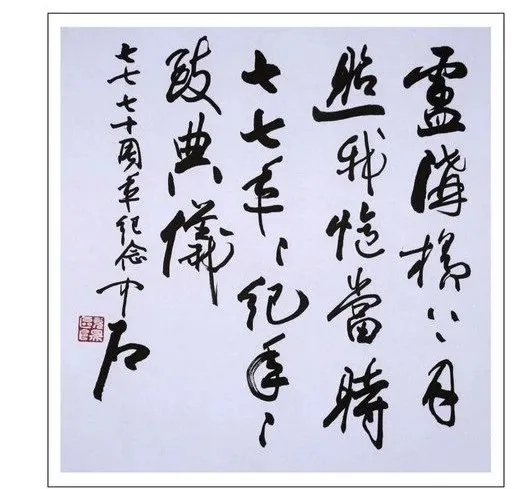 盧溝橋上月
照我憶當時
七七年々紀年々
致典儀
七七七十周年纪念 中石